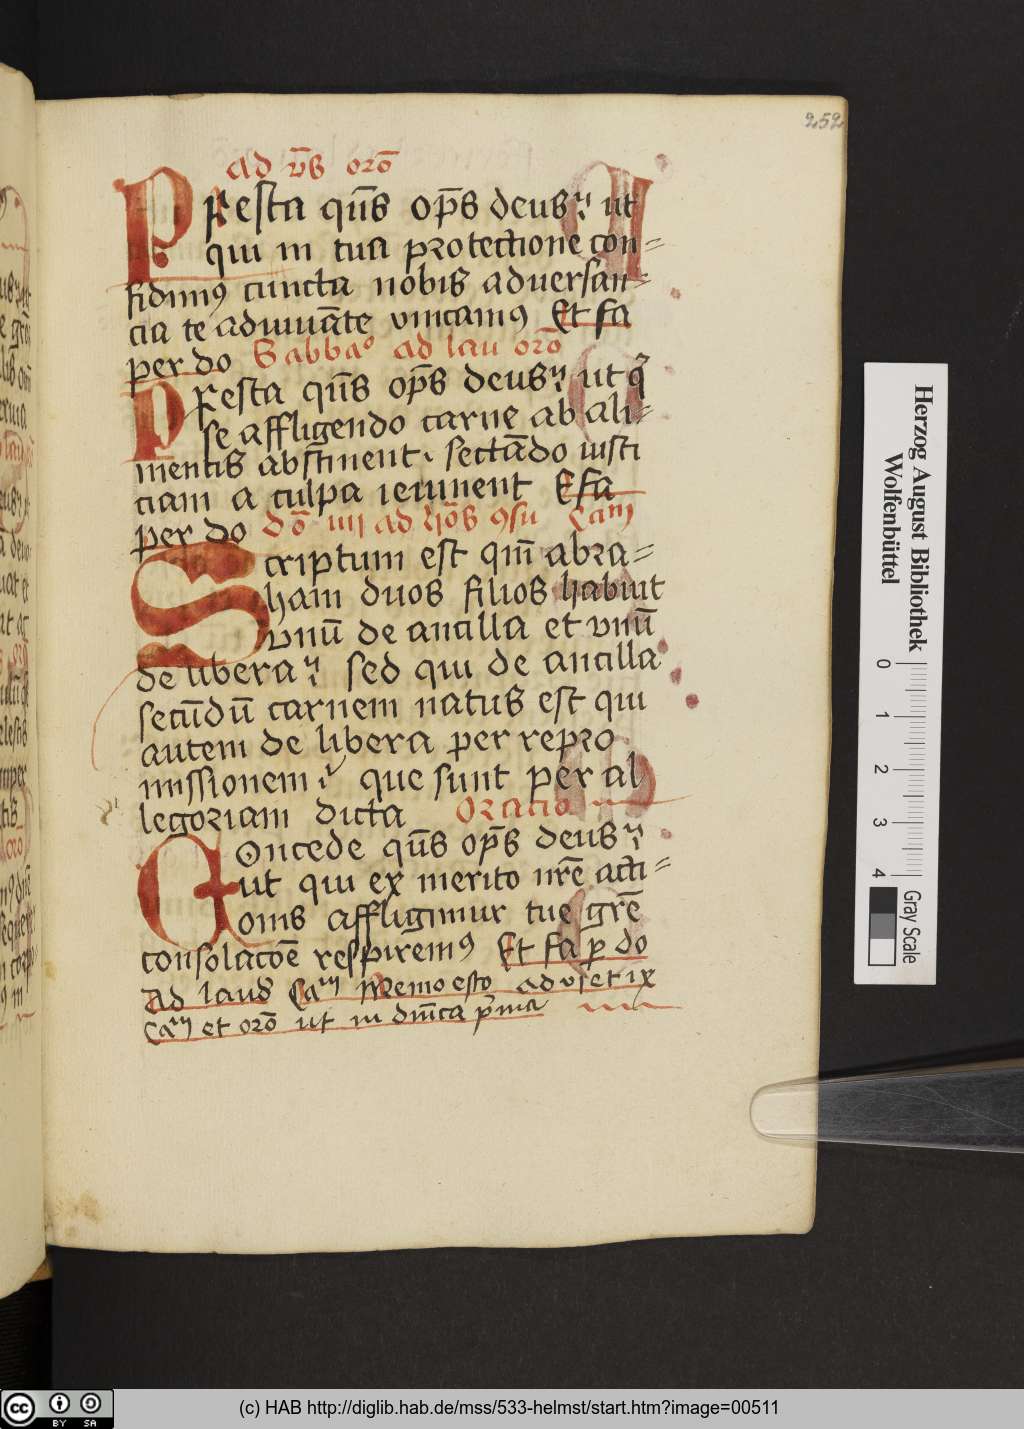 252
ad vs̄ orō
PResta qūs op̄s deus ut
qui in tua protectione con=
fidim9 cuncta nobis aduersan=
cia te adiuuāte vincam9 Et fa
per do Sabbaº ad lau orō
PResta qūs op̄s deus ut q̄
se affligendo carne ab ali=
mentis abstinent sectādo iusti
ciam a culpa ieiunent E fa
per do dō iiij ad hōs 9su Cam
Scriptum est qm̄ abra=
ham duos filios habuit
vnū de ancilla et vnū
de libera sed qui de ancilla
secūdū carnem natus est qui
autem de libera per repro
missionem que sunt per al
legoriam dicta Oracio
COncede qūs op̄s deus
ut qui ex merito nr̄e acti=
onis affligimur tue gr̄e
consolacōe respirem9 Et fa p do
Ad laud Ca Memo esto ad vs et ix
Ca et orō ut in dm̄ca p̄ma
Herzog August Bibliothek
Wolfenbüttel
0 1 2 3 4
Gray Scale
cc BY SA
(c) HAB http://diglib.hab.de/mss/533-helmst/start.htm?image=00511